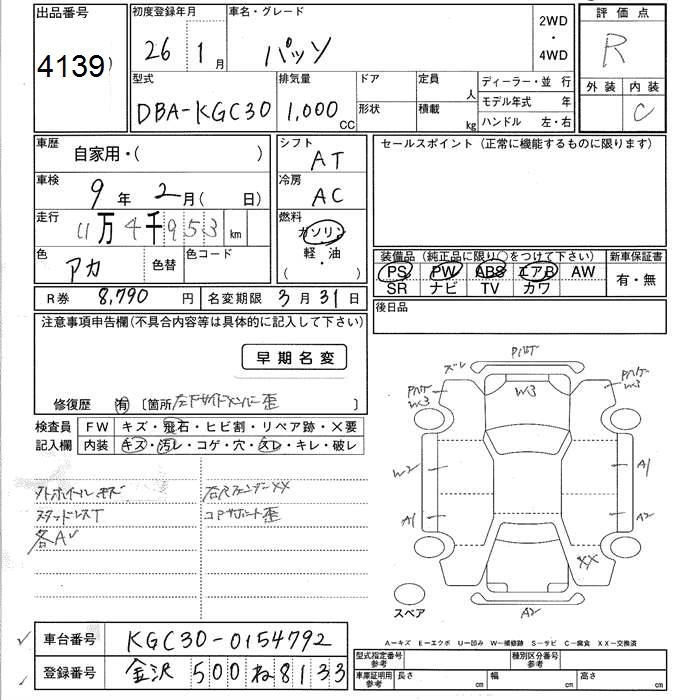 出品番号
4139
初度登録年月
26 1月
車名・グレード
パッソ
2WD
・
4WD
評価点
R
外装 内装
C
型式
DBA-KGC30
排気量
1,000 CC
ドア
形状
定員 人
積載 kg
ディーラー・並 行
モデル年式 年
ハンドル 左・右
車歴
自家用・( )
車検
9年 2月( 日)
走行
11万4千953 km
色
アカ
色替
色コード
シフト
AT
冷房
AC
燃料
ガソリン
軽・油
( )
セールスポイント(正常に機能するものに限ります)
装備品(純正品に限り○をつけて下さい)
PS PW ABS エアB AW
SR ナビ TV カワ
新車保証書
有・無
R券 8,790 円
名変期限 3月31日
後日品
注意事項申告欄(不具合内容等は具体的に記入して下さい)
早期名変
修復歴 有 〔箇所 左Fサイドメンバー歪 〕
検査員
記入欄
FW キズ・飛石・ヒビ割・リペア跡・×要
内装 キズ・汚レ・コゲ・穴・スレ・キレ・破レ
スタッドレスT
各AU
右Fフェンダー××
コアサポート歪
ズレ
W3
W3
W3
W2
A1
A1
A2
XX
A2
スペア
車台番号
KGC30-0154792
登録番号
金沢 500 ね 8133
A-キズ E-エクボ U-凹み W-補修跡 S-サビ C-腐食 XX-交換済
型式指定番号
参考
種別区分番号
参考
車庫証明用
参考
長さ cm
幅 cm
高さ cm